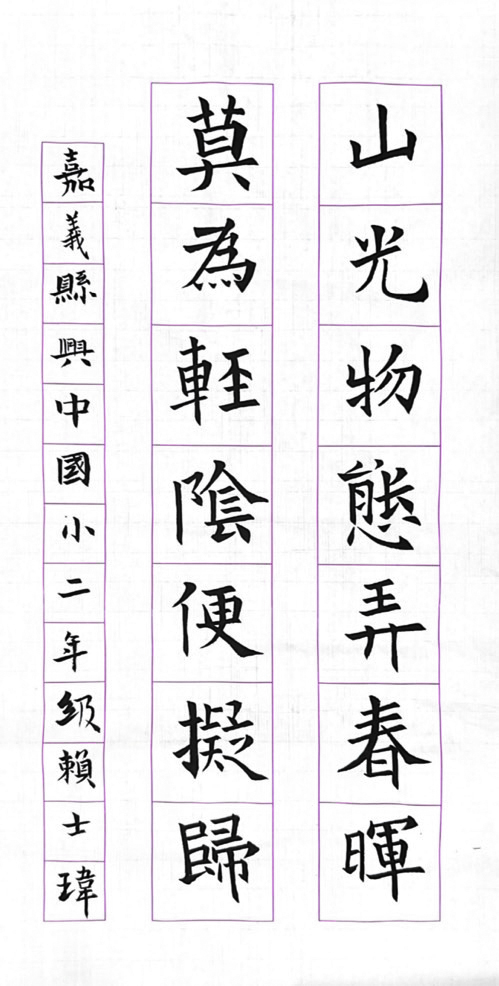 山光物態弄春暉
莫為輕陰便擬歸
嘉義縣興中國小二年級賴士瑋